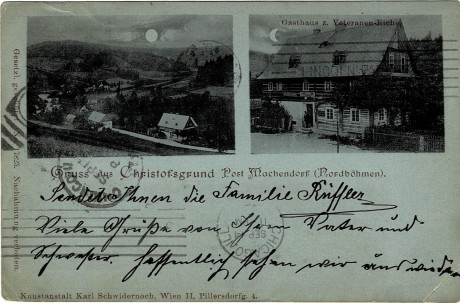 Gasthaus z. Veteranen-Eiche
Gruss aus Christofsgrund Post Machendorf (Nordböhmen).
Sendet Ihnen die Familie Rüffler
Viele Grüße von Ihren Vater und
Schwester. hoffentlich sehen wir uns wieder
CHICAGO, ILL.
SEP
Kunstanstalt Karl Schwidernoch, Wien II, Pillersdorfg. 4.
Gesetzl.
Nachahmung verboten.